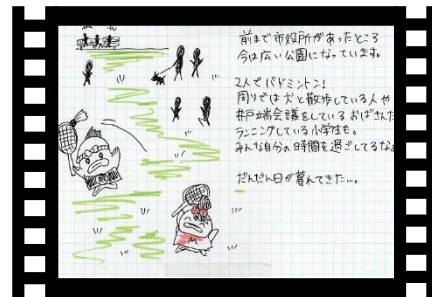 前まで市役所があったところ
今は広い公園になっています。
2人でバドミントン!
周りでは犬と散歩している人や
井戸端会議をしているおばさんた
ランニングしている小学生も。
みんな自分の時間を過ごしてるなぁ
だんだん日が暮れてきた…。